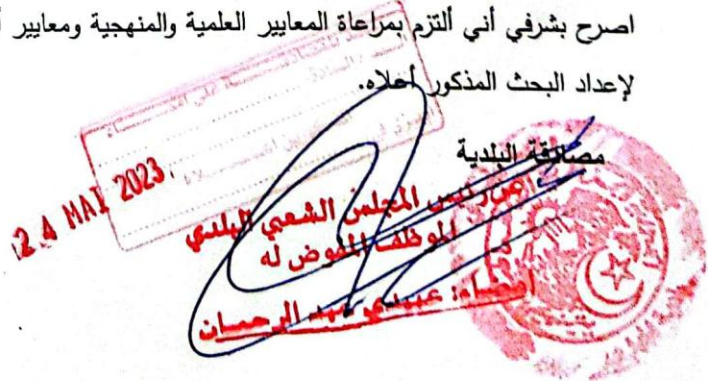 اصرح بشرفي أني ألتزم بمراعاة المعايير العلمية والمنهجية ومعايير
لإعداد البحث المذكور أعلاه.
مصادقة البلدية
24 MAI 2023
عن رئيس المجلس الشعبي البلدي
الموظف المفوض له
إمضاء: عبيدي عبد الرحمان